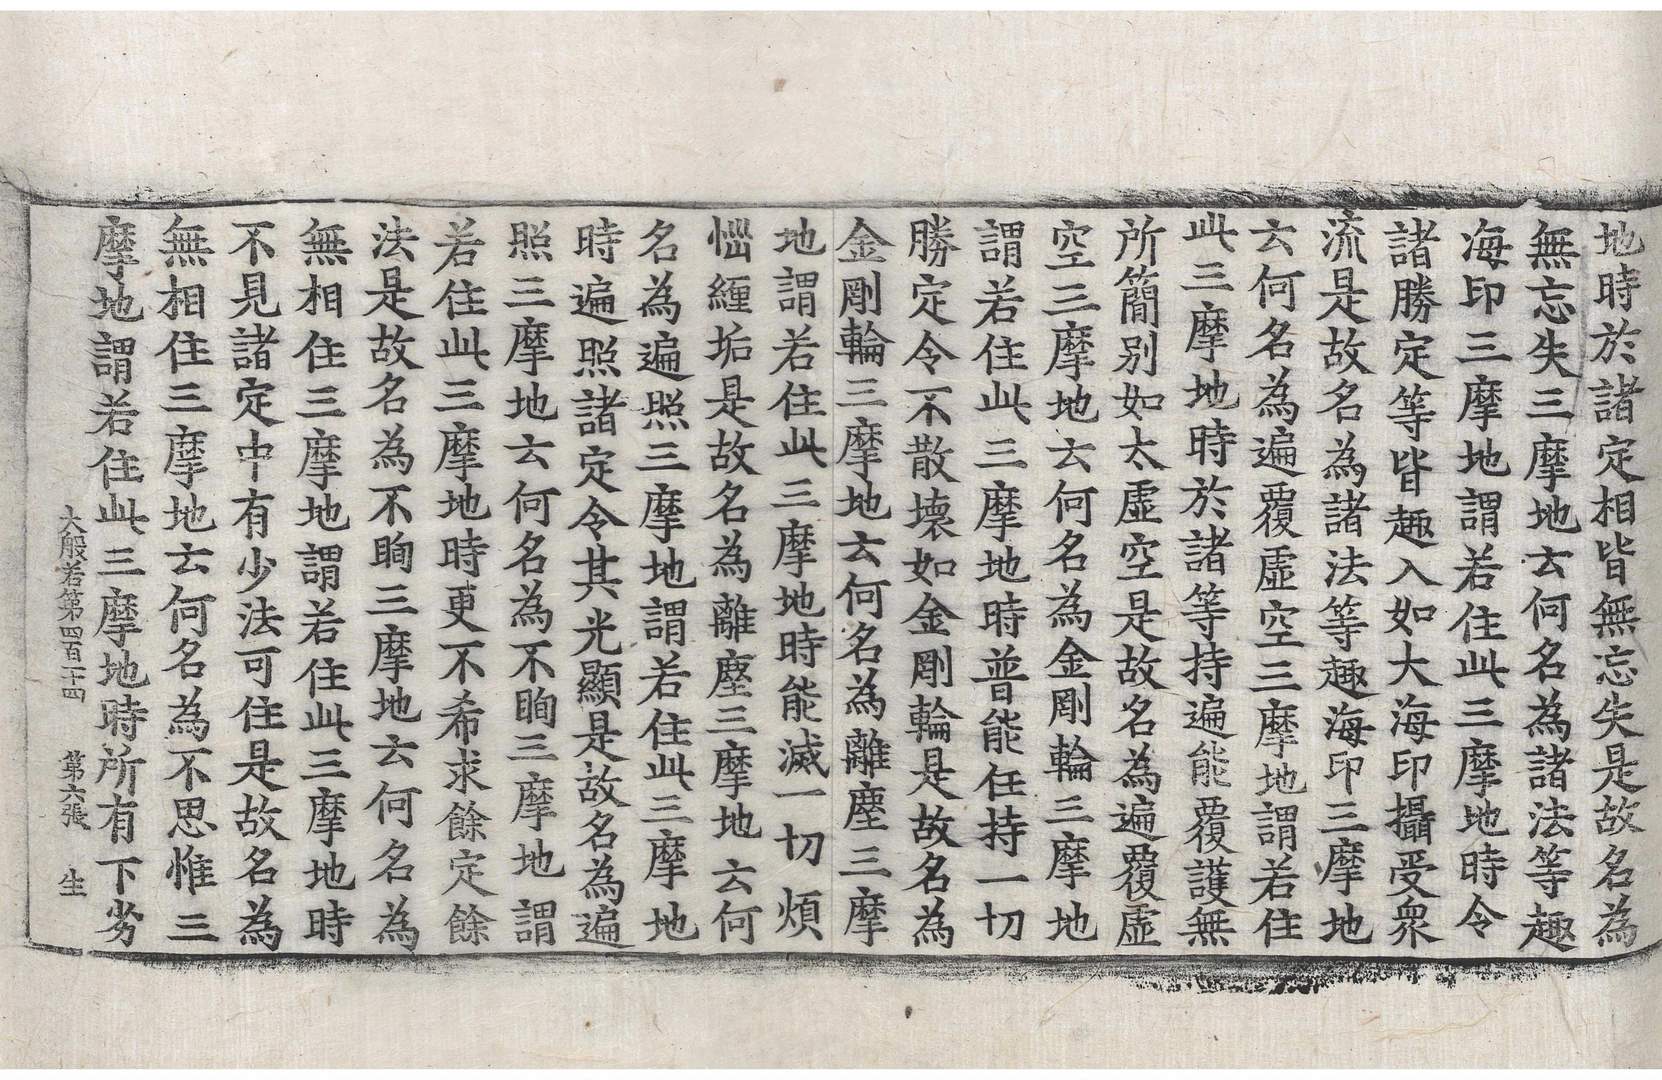 地時於諸定相皆無忘失是故名為
無忘失三摩地云何名為諸法等趣
海印三摩地謂若住此三摩地時令
諸勝定等皆趣入如大海印攝受衆
流是故名為諸法等趣海印三摩地
云何名為遍覆虛空三摩地謂若住
此三摩地時於諸等持遍能覆護無
所簡別如太虛空是故名為遍覆虛
空三摩地云何名為金剛輪三摩地
謂若住此三摩地時普能任持一切
勝定令不散壞如金剛輪是故名為
金剛輪三摩地云何名為離塵三摩
地謂若住此三摩地時能滅一切煩
惱纏垢是故名為離塵三摩地云何
名為遍照三摩地謂若住此三摩地
時遍照諸定令其光顯是故名為遍
照三摩地云何名為不眴三摩地謂
若住此三摩地時更不希求餘定餘
法是故名為不眴三摩地云何名為
無相住三摩地謂若住此三摩地時
不見諸定中有少法可住是故名為
無相住三摩地云何名為不思惟三
摩地謂若住此三摩地時所有下劣
大般若第四百一十四 第六張 生